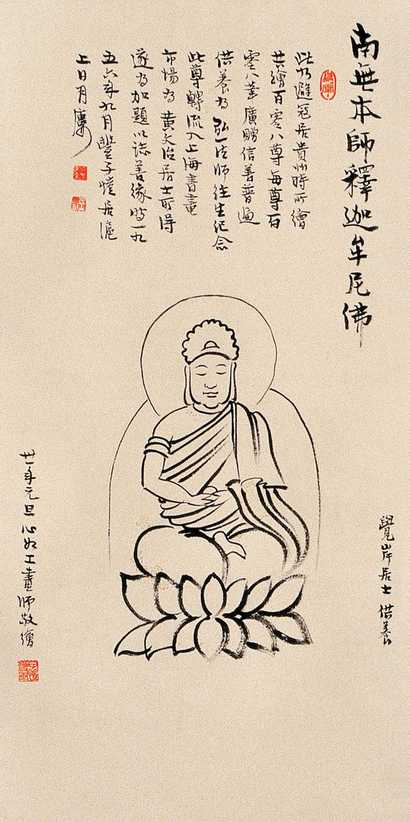 南無本師釋迦牟尼佛
此乃避寇居貴州時所繪
共繪百零八尊每尊百
零八葉廣贈信善普遍
供養为弘一法师往生紀念
此尊轉流入上海書畫
市場为黃文治居士所得
遂为加題以誌善缘時一九
五六年九月豐子愷居滬
上日月樓
覺岸居士供養
卅一年元旦心如工畫师敬繪